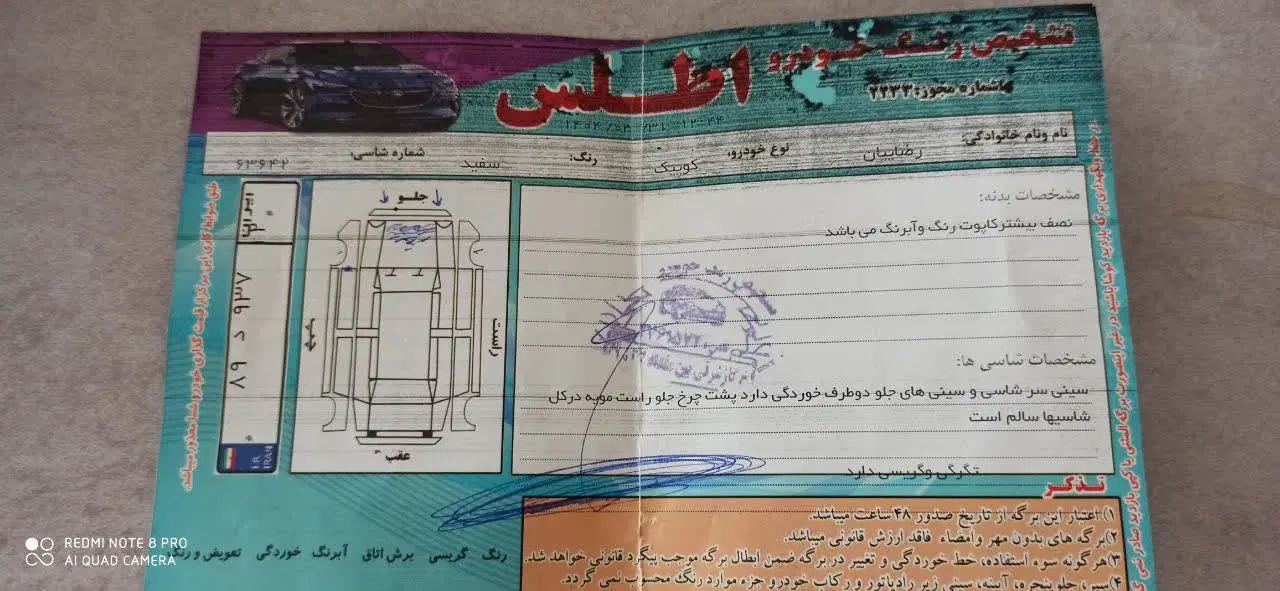 تشخیص رنگ خودرو اطلس
شماره مجوز: ۲۲۳۳
نام ونام خانوادگی: رضاییان نوع خودرو: کوییک رنگ: سفید شماره شاسی: ۶۳۶۴۲
مشخصات بدنه:
نصف بیشترکاپوت رنگ وآبرنگ می باشد
مشخصات شاسی ها:
سینی سر شاسی و سینی های جلو دوطرف خوردگی دارد پشت چرخ جلو راست مویه درکل
شاسیها سالم است
تگرگی وگریسی دارد
جلو
راست
چپ
عقب
ایران
۸۹ د ۹۳۷
I.R.
IRAN
تذکر
۱) اعتبار این برگه از تاریخ صدور ۴۸ ساعت میباشد.
۲) برگه های بدون مهر وامضاء فاقد ارزش قانونی میباشد.
۳) هرگونه سوء استفاده، خط خوردگی و تغییر در برگه ضمن ابطال برگه موجب پیگرد قانونی خواهد شد.
۴) سپر، جلو پنجره، آیینه، سینی زیر رادیاتور و رکاب خودرو جزء موارد رنگ محسوب نمی گردد.
رنگ گریسی برش اتاق آبرنگ خوردگی تعویض و رنگ
REDMI NOTE 8 PRO
AI QUAD CAMERA